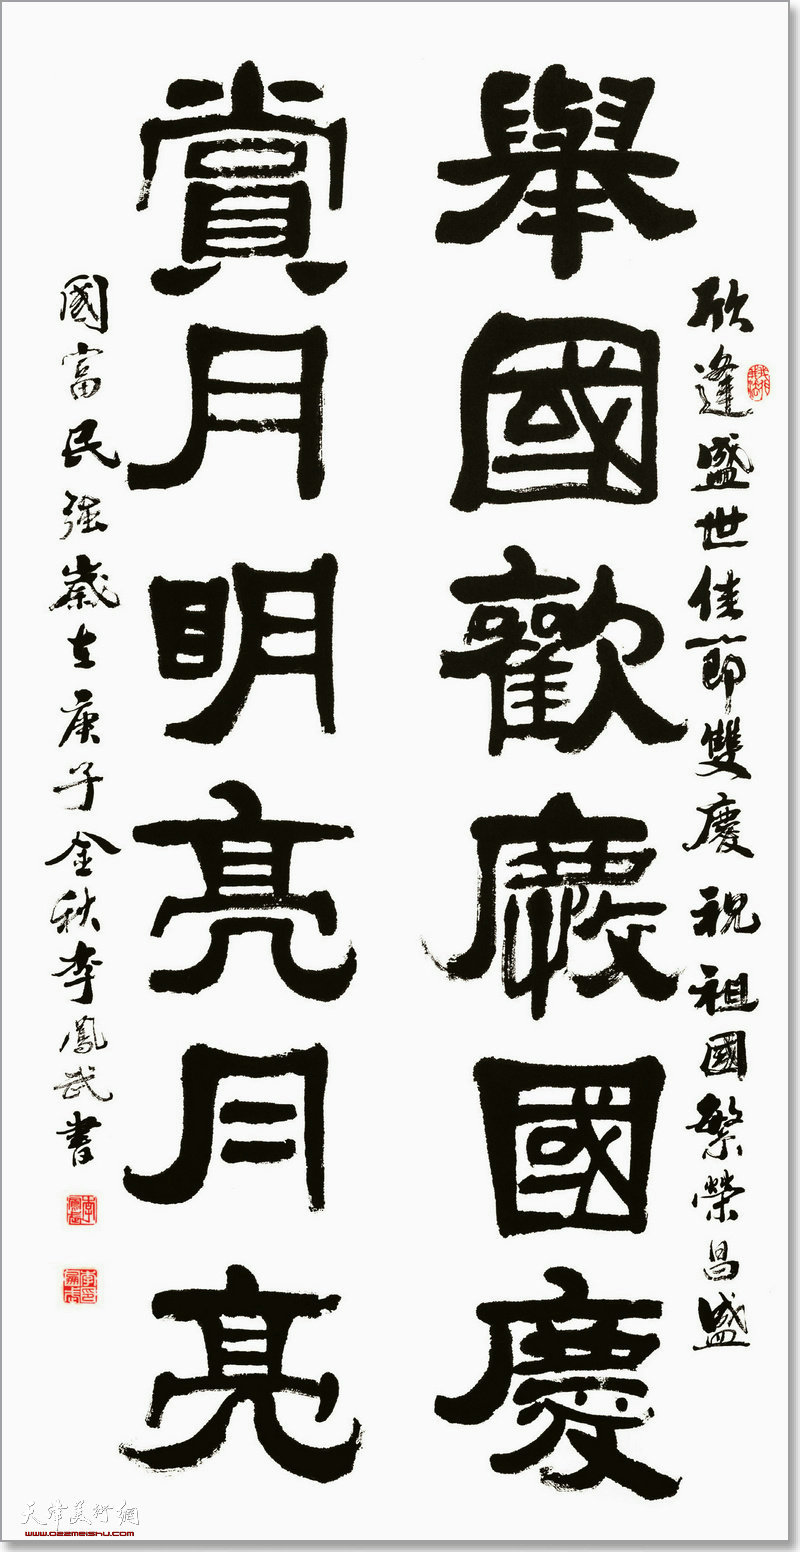 欣逢盛世佳節雙慶祝祖國繁榮昌盛
舉國歡慶國慶
賞月明亮月亮
國富民強歲在庚子金秋李鳳武書
天津美術網
www.022meishu.com